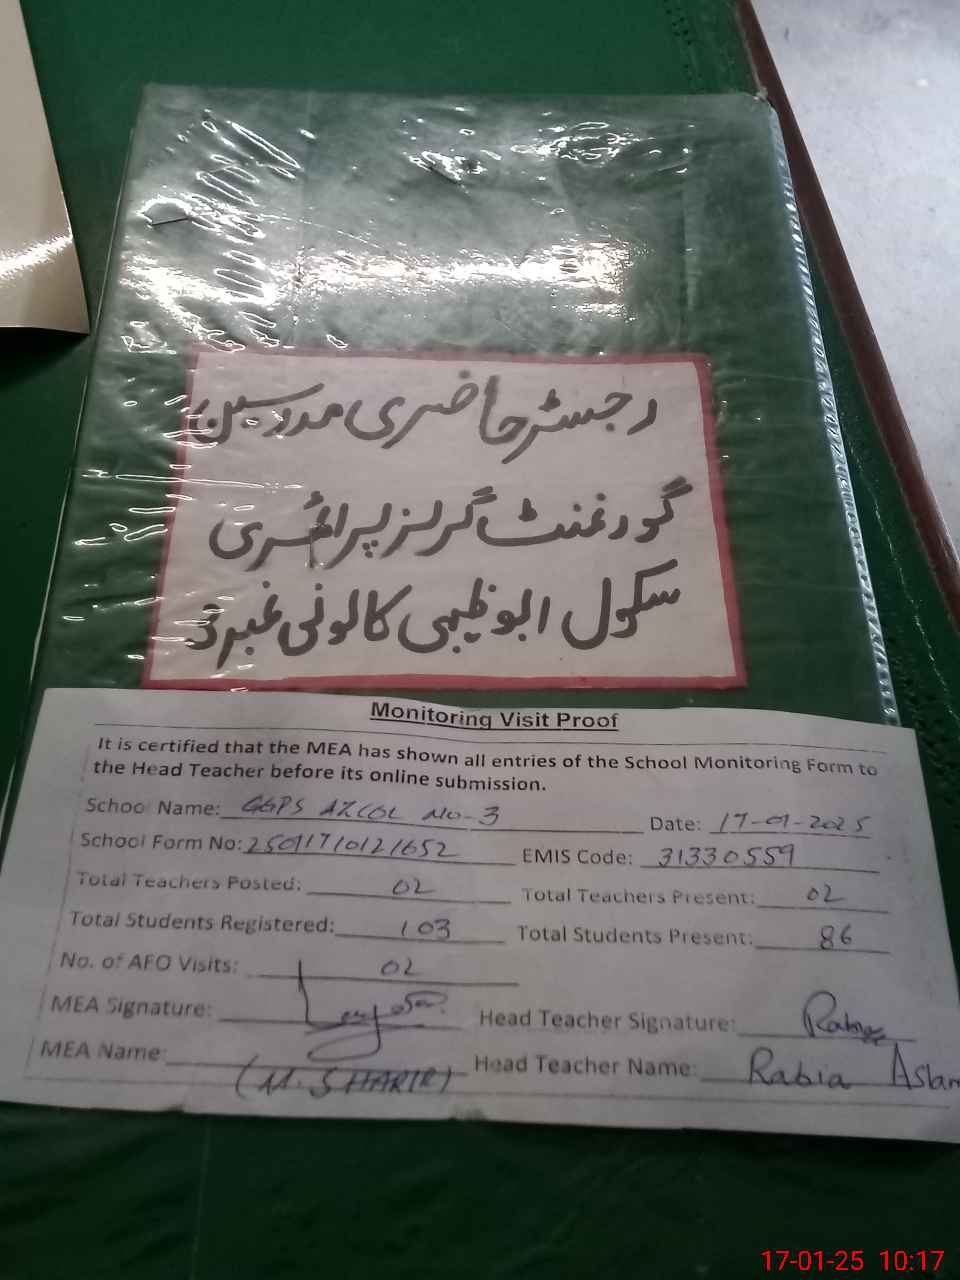 رجسٹر حاضری مدرسین
گورنمنٹ گرلز پرائمری
سکول ابوظہبی کالونی نمبر 3
Monitoring Visit Proof
It is certified that the MEA has shown all entries of the School Monitoring Form to
the Head Teacher before its online submission.
School Name: GGPS AZCOL No-3 Date: 17-01-2025
School Form No: 2501710121652 EMIS Code: 31330559
Total Teachers Posted: 02 Total Teachers Present: 02
Total Students Registered: 103 Total Students Present: 86
No. of AFO Visits: 02
MEA Signature: Head Teacher Signature: Rabia
MEA Name: Head Teacher Name: Rabia Aslam
17-01-25 10:17